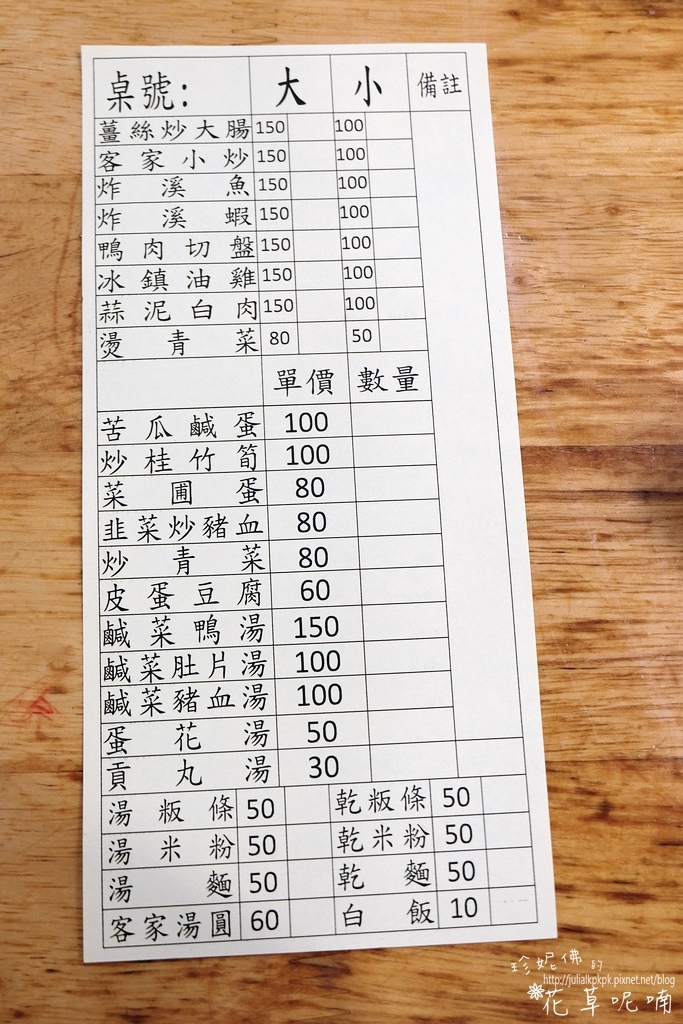 桌號: 大 小 備註
薑絲炒大腸 150 100
客家小炒 150 100
炸溪魚 150 100
炸溪蝦 150 100
鴨肉切盤 150 100
冰鎮油雞 150 100
蒜泥白肉 150 100
燙青菜 80 50
單價 數量
苦瓜鹹蛋 100
炒桂竹筍 100
菜圃蛋 80
韭菜炒豬血 80
炒青菜 80
皮蛋豆腐 60
鹹菜鴨湯 150
鹹菜肚片湯 100
鹹菜豬血湯 100
蛋花湯 50
貢丸湯 30
湯粄條 50 乾粄條 50
湯米粉 50 乾米粉 50
湯麵 50 乾麵 50
客家湯圓 60 白飯 10
珍妮佛的
http://julialkpkpk.pixnet.net/blog
花草呢喃